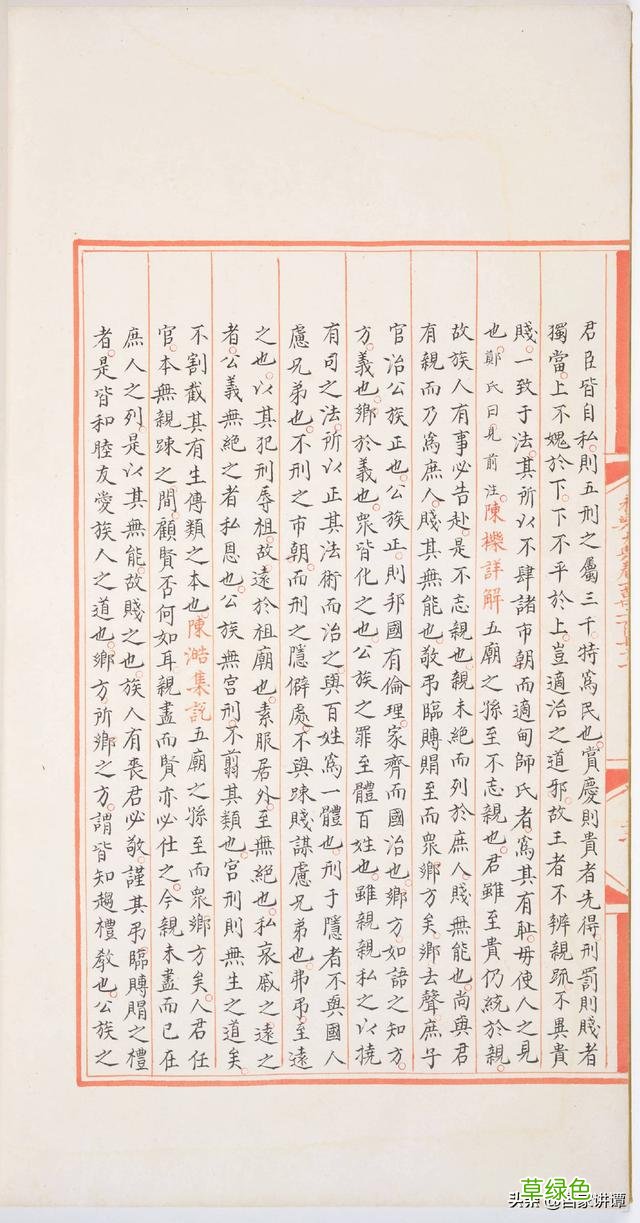 君臣皆自私則五刑之屬三千特爲民也賞慶則貴者先得刑罰則賤者
獨當上不媿於下下不平於上豈適治之道邪故王者不辨親疏不異貴
賤一致于法其所以不肆諸市朝而適甸師氏者爲其有恥毋使人之見
也鄭氏曰見前注陳櫟詳解五廟之孫至不忘親也君雖至貴仍統於親
故族人有事必告赴是不忘親也親未絕而列於庶人賤無能也尚與君
有親而乃爲庶人賤其無能也敬弔臨賻賵至而衆鄉方矣鄉去聲庶子
官治公族正也公族正則邦國有倫理家齊而國治也鄉方如語之知方
方義也鄉於義也衆皆化之也公族之罪至體百姓也雖親親私之以撓
有司之法所以正其法術而治之與百姓爲一體也刑于隱者不與國人
慮兄弟也不刑之市朝而刑之隱僻處不與踈賤謀慮兄弟也弗弔至遠
之也以其犯刑辱祖故遠於祖廟也素服居外至無絕也私哀戚之遠之
者公義無絕之者私恩也公族無宮刑不翦其類也宮刑則無生之道矣
不割截其有生傳類之本也陳澔集說五廟之孫至而衆鄉方矣人君任
官本無親踈之間顧賢否何如耳親盡而賢亦必仕之今親未盡而已在
庶人之列是以其無能故賤之也族人有喪君必敬謹其弔臨賻賵之禮
者是皆和睦友愛族人之道也鄉方所鄉之方謂皆知趨禮教也公族之
草绿色
头条 @百家讲谭